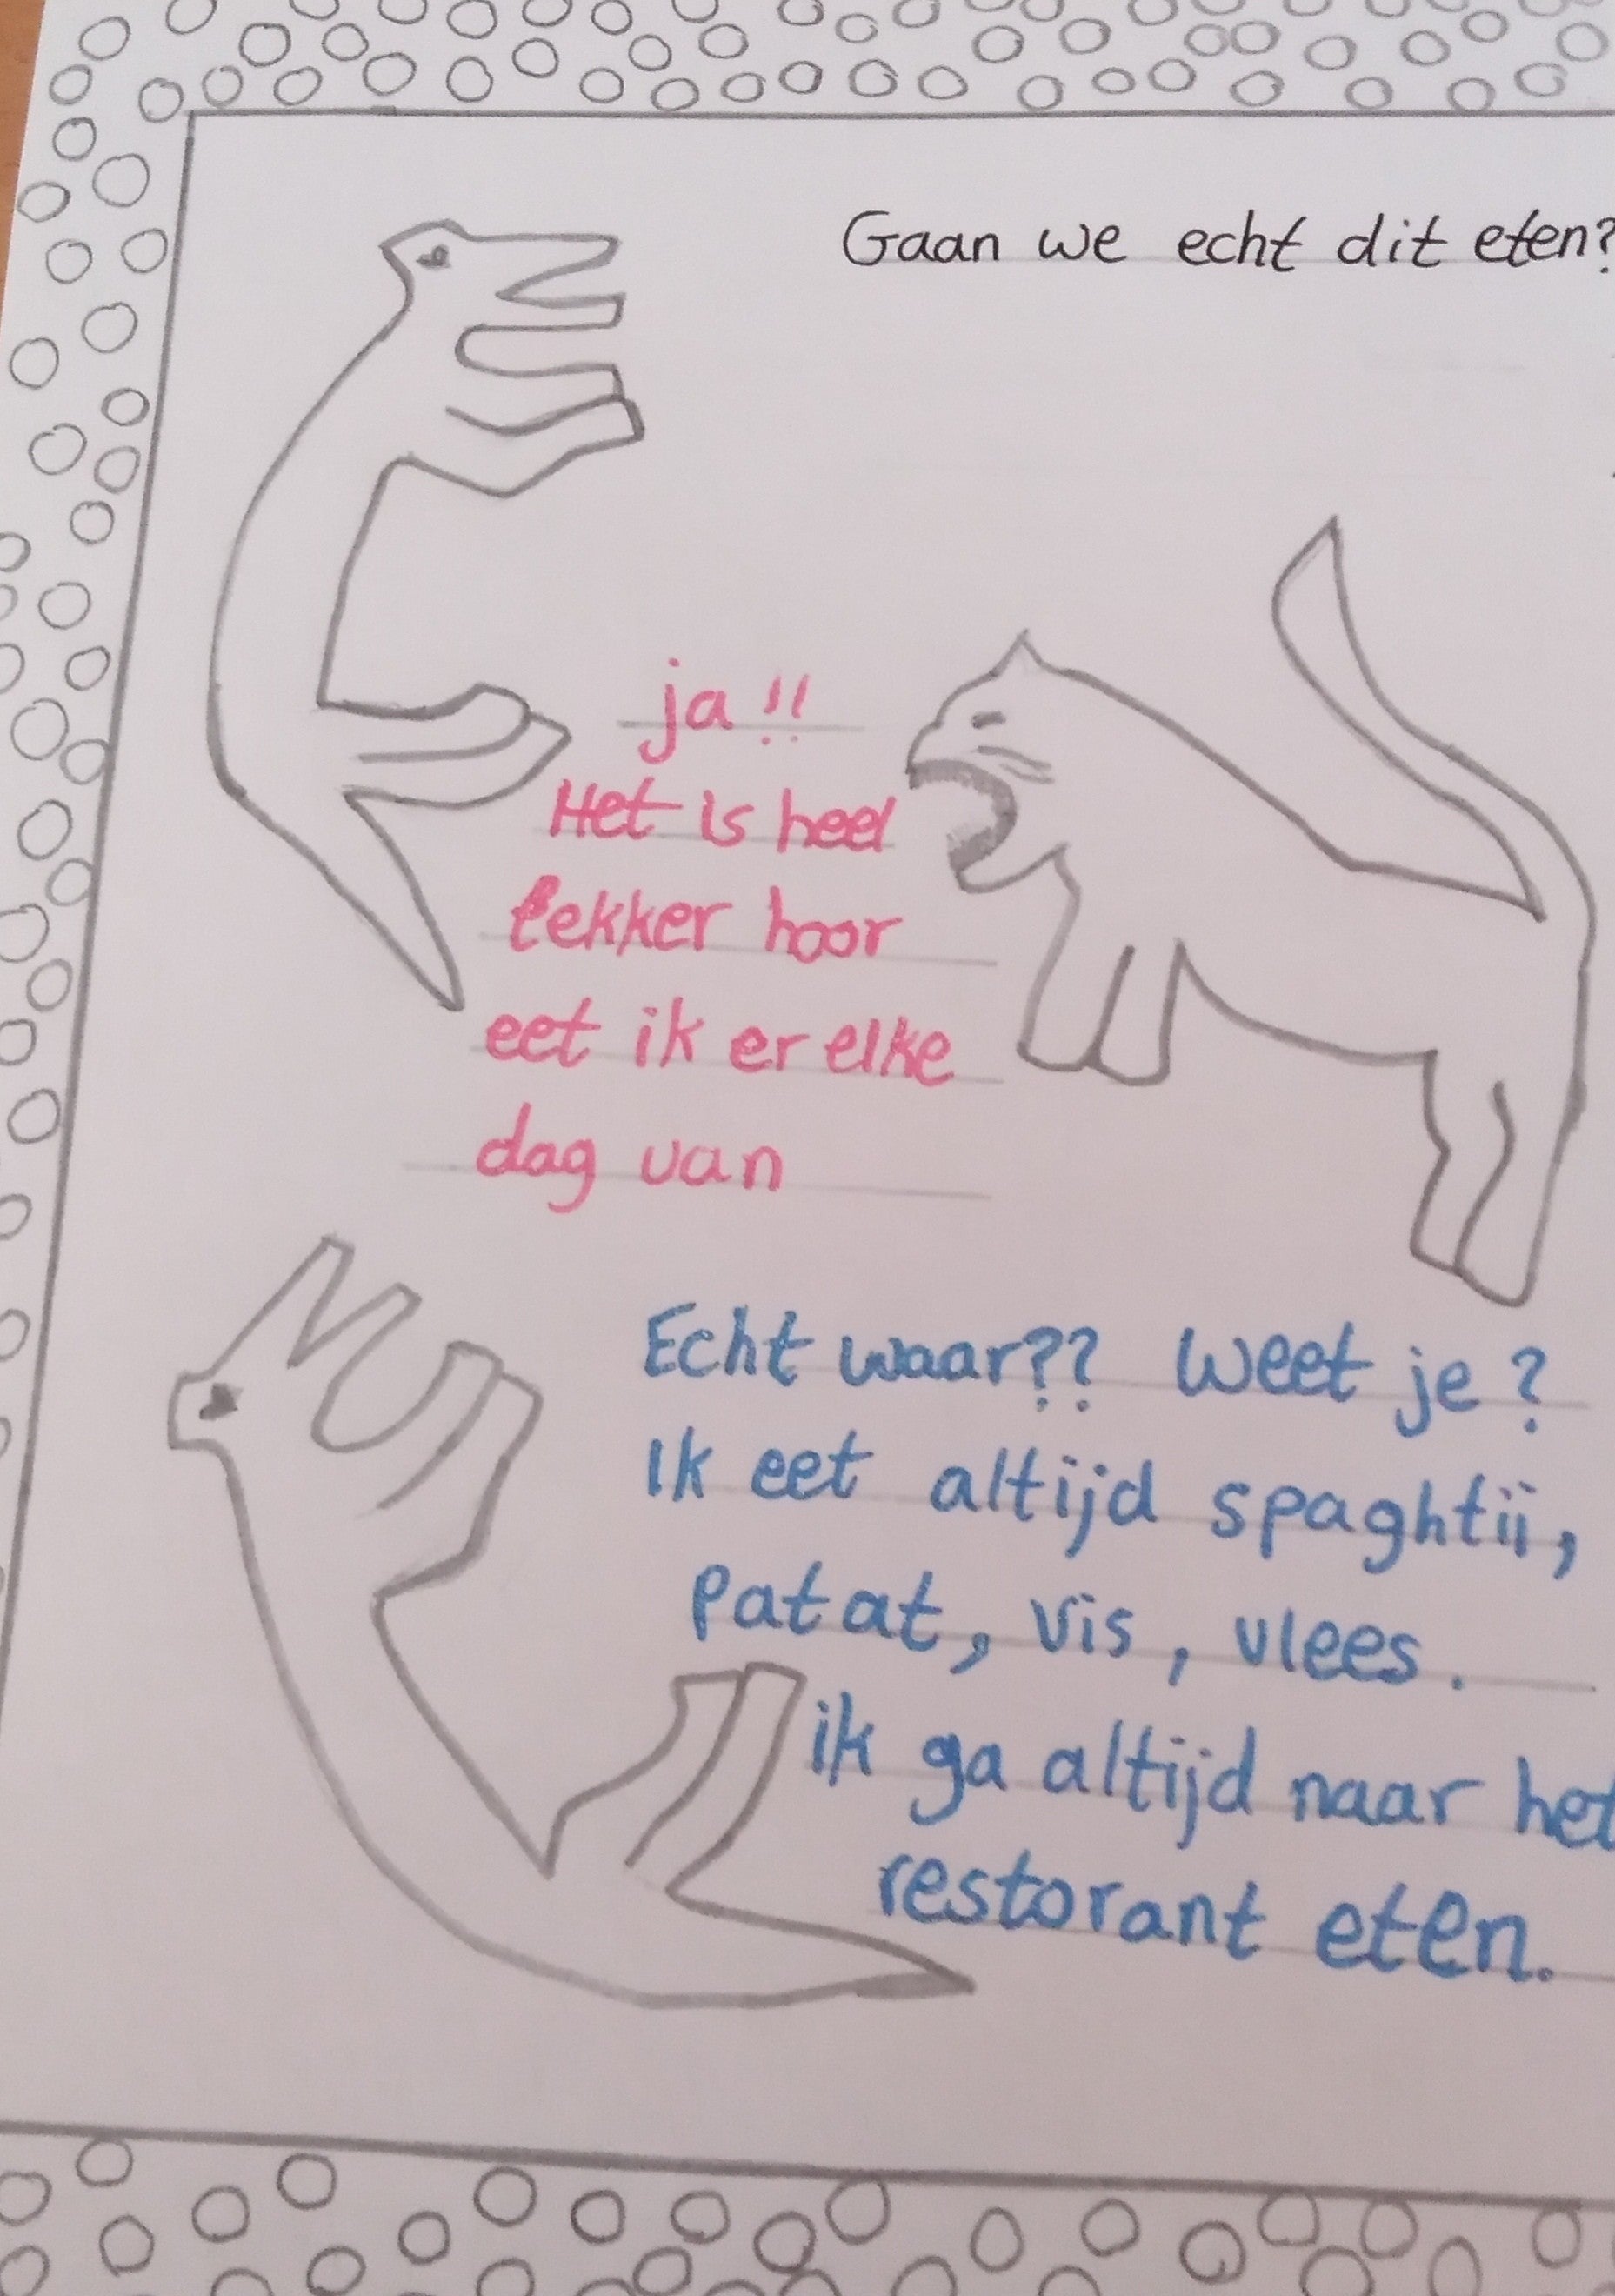 Gaan we echt dit eten?
ja!!
Het is heel
lekker hoor
eet ik er elke
dag van
Echt waar?? Weet je?
Ik eet altijd spaghtii,
Patat, vis, vlees.
ik ga altijd naar het
restorant eten.